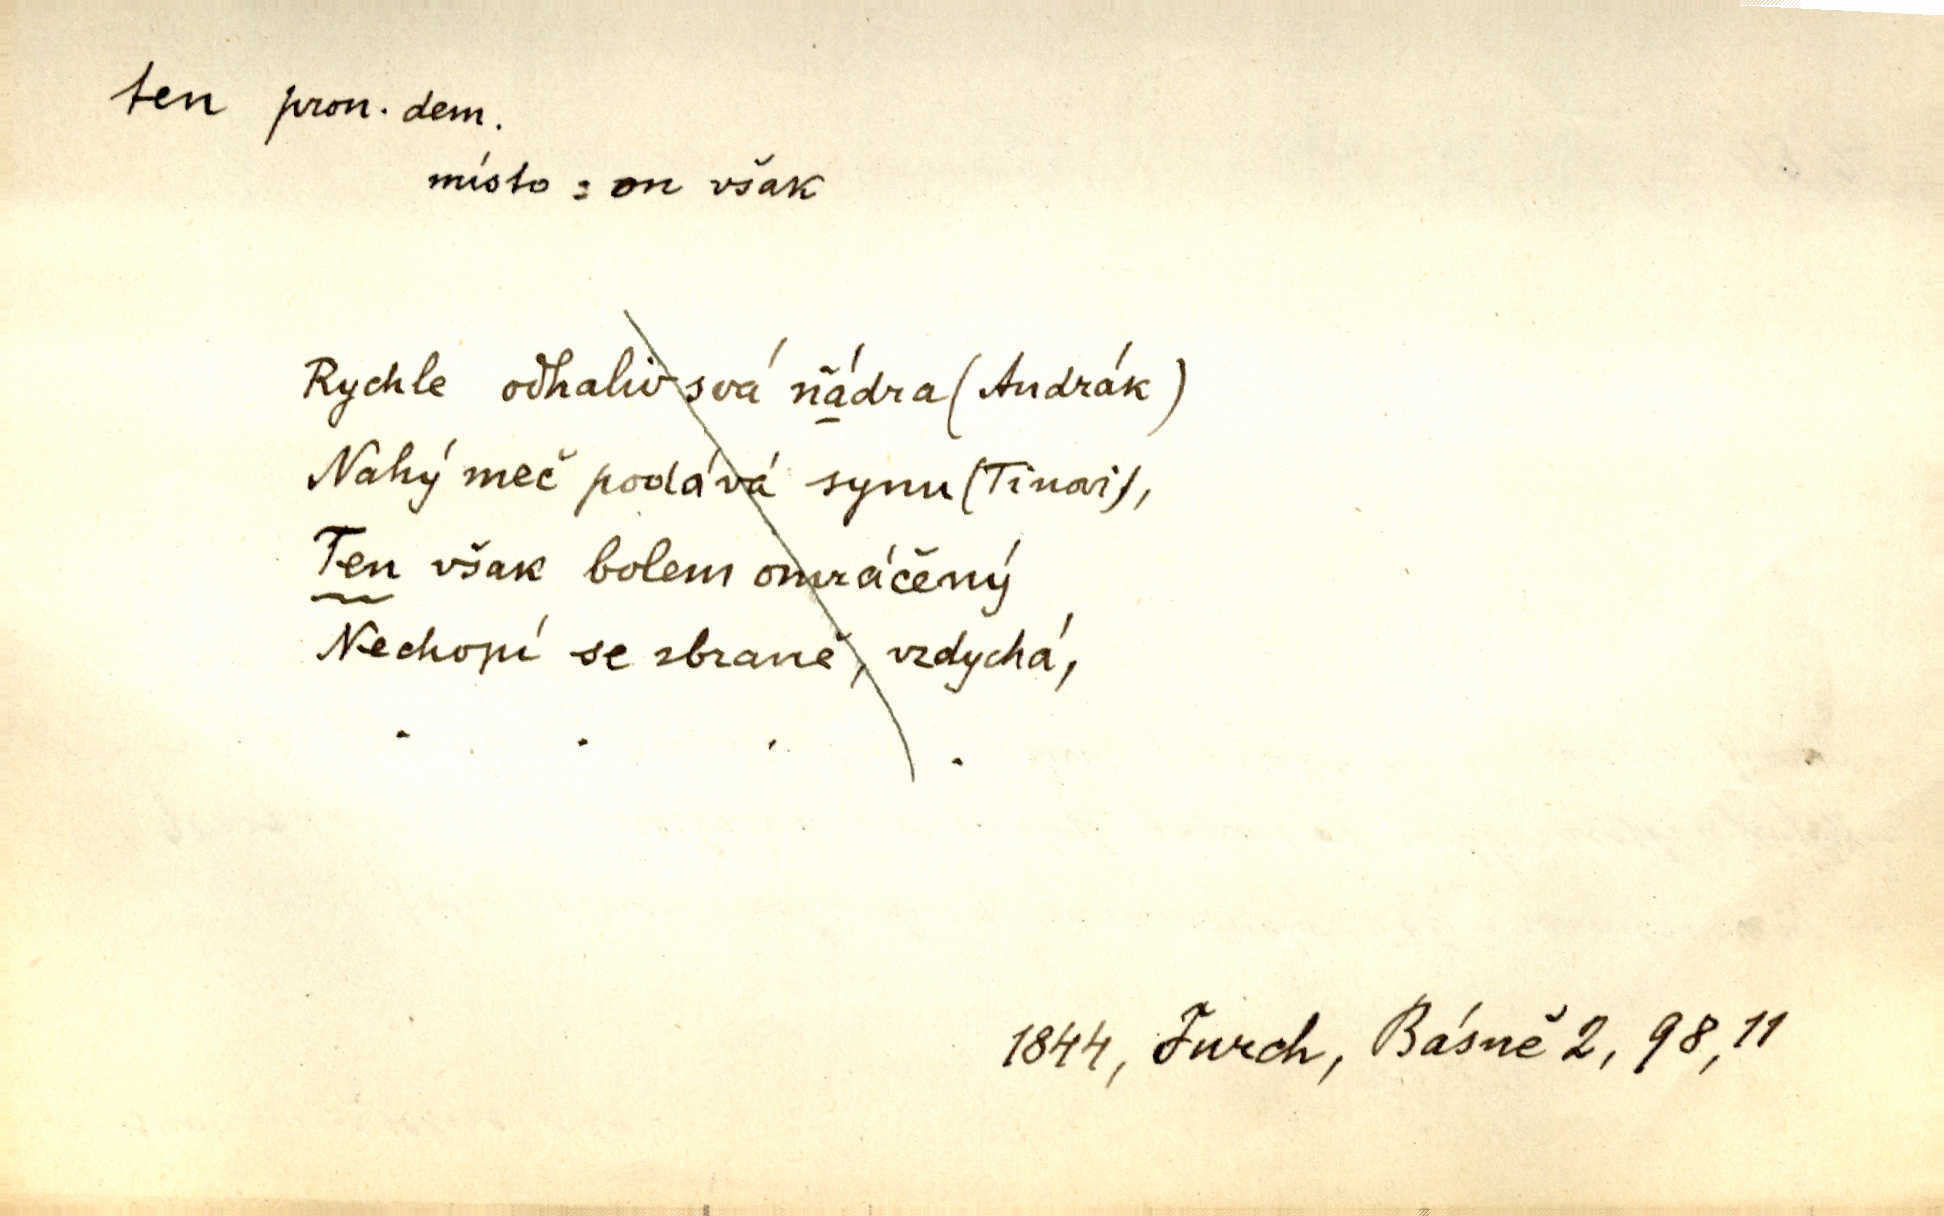 ten pron. dem.
místo : on však
Rychle odhaliv svá ňádra (Andrák)
Nahý meč podává synu (Tinovi),
Ten však bolem omráčený
Nechopí se zbraně, vzdychá,
. . . .
1844, Furch, Básně 2, 98, 11